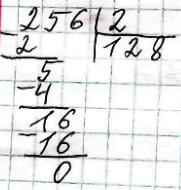 256 2
-2 128
5
-4
16
-16
0